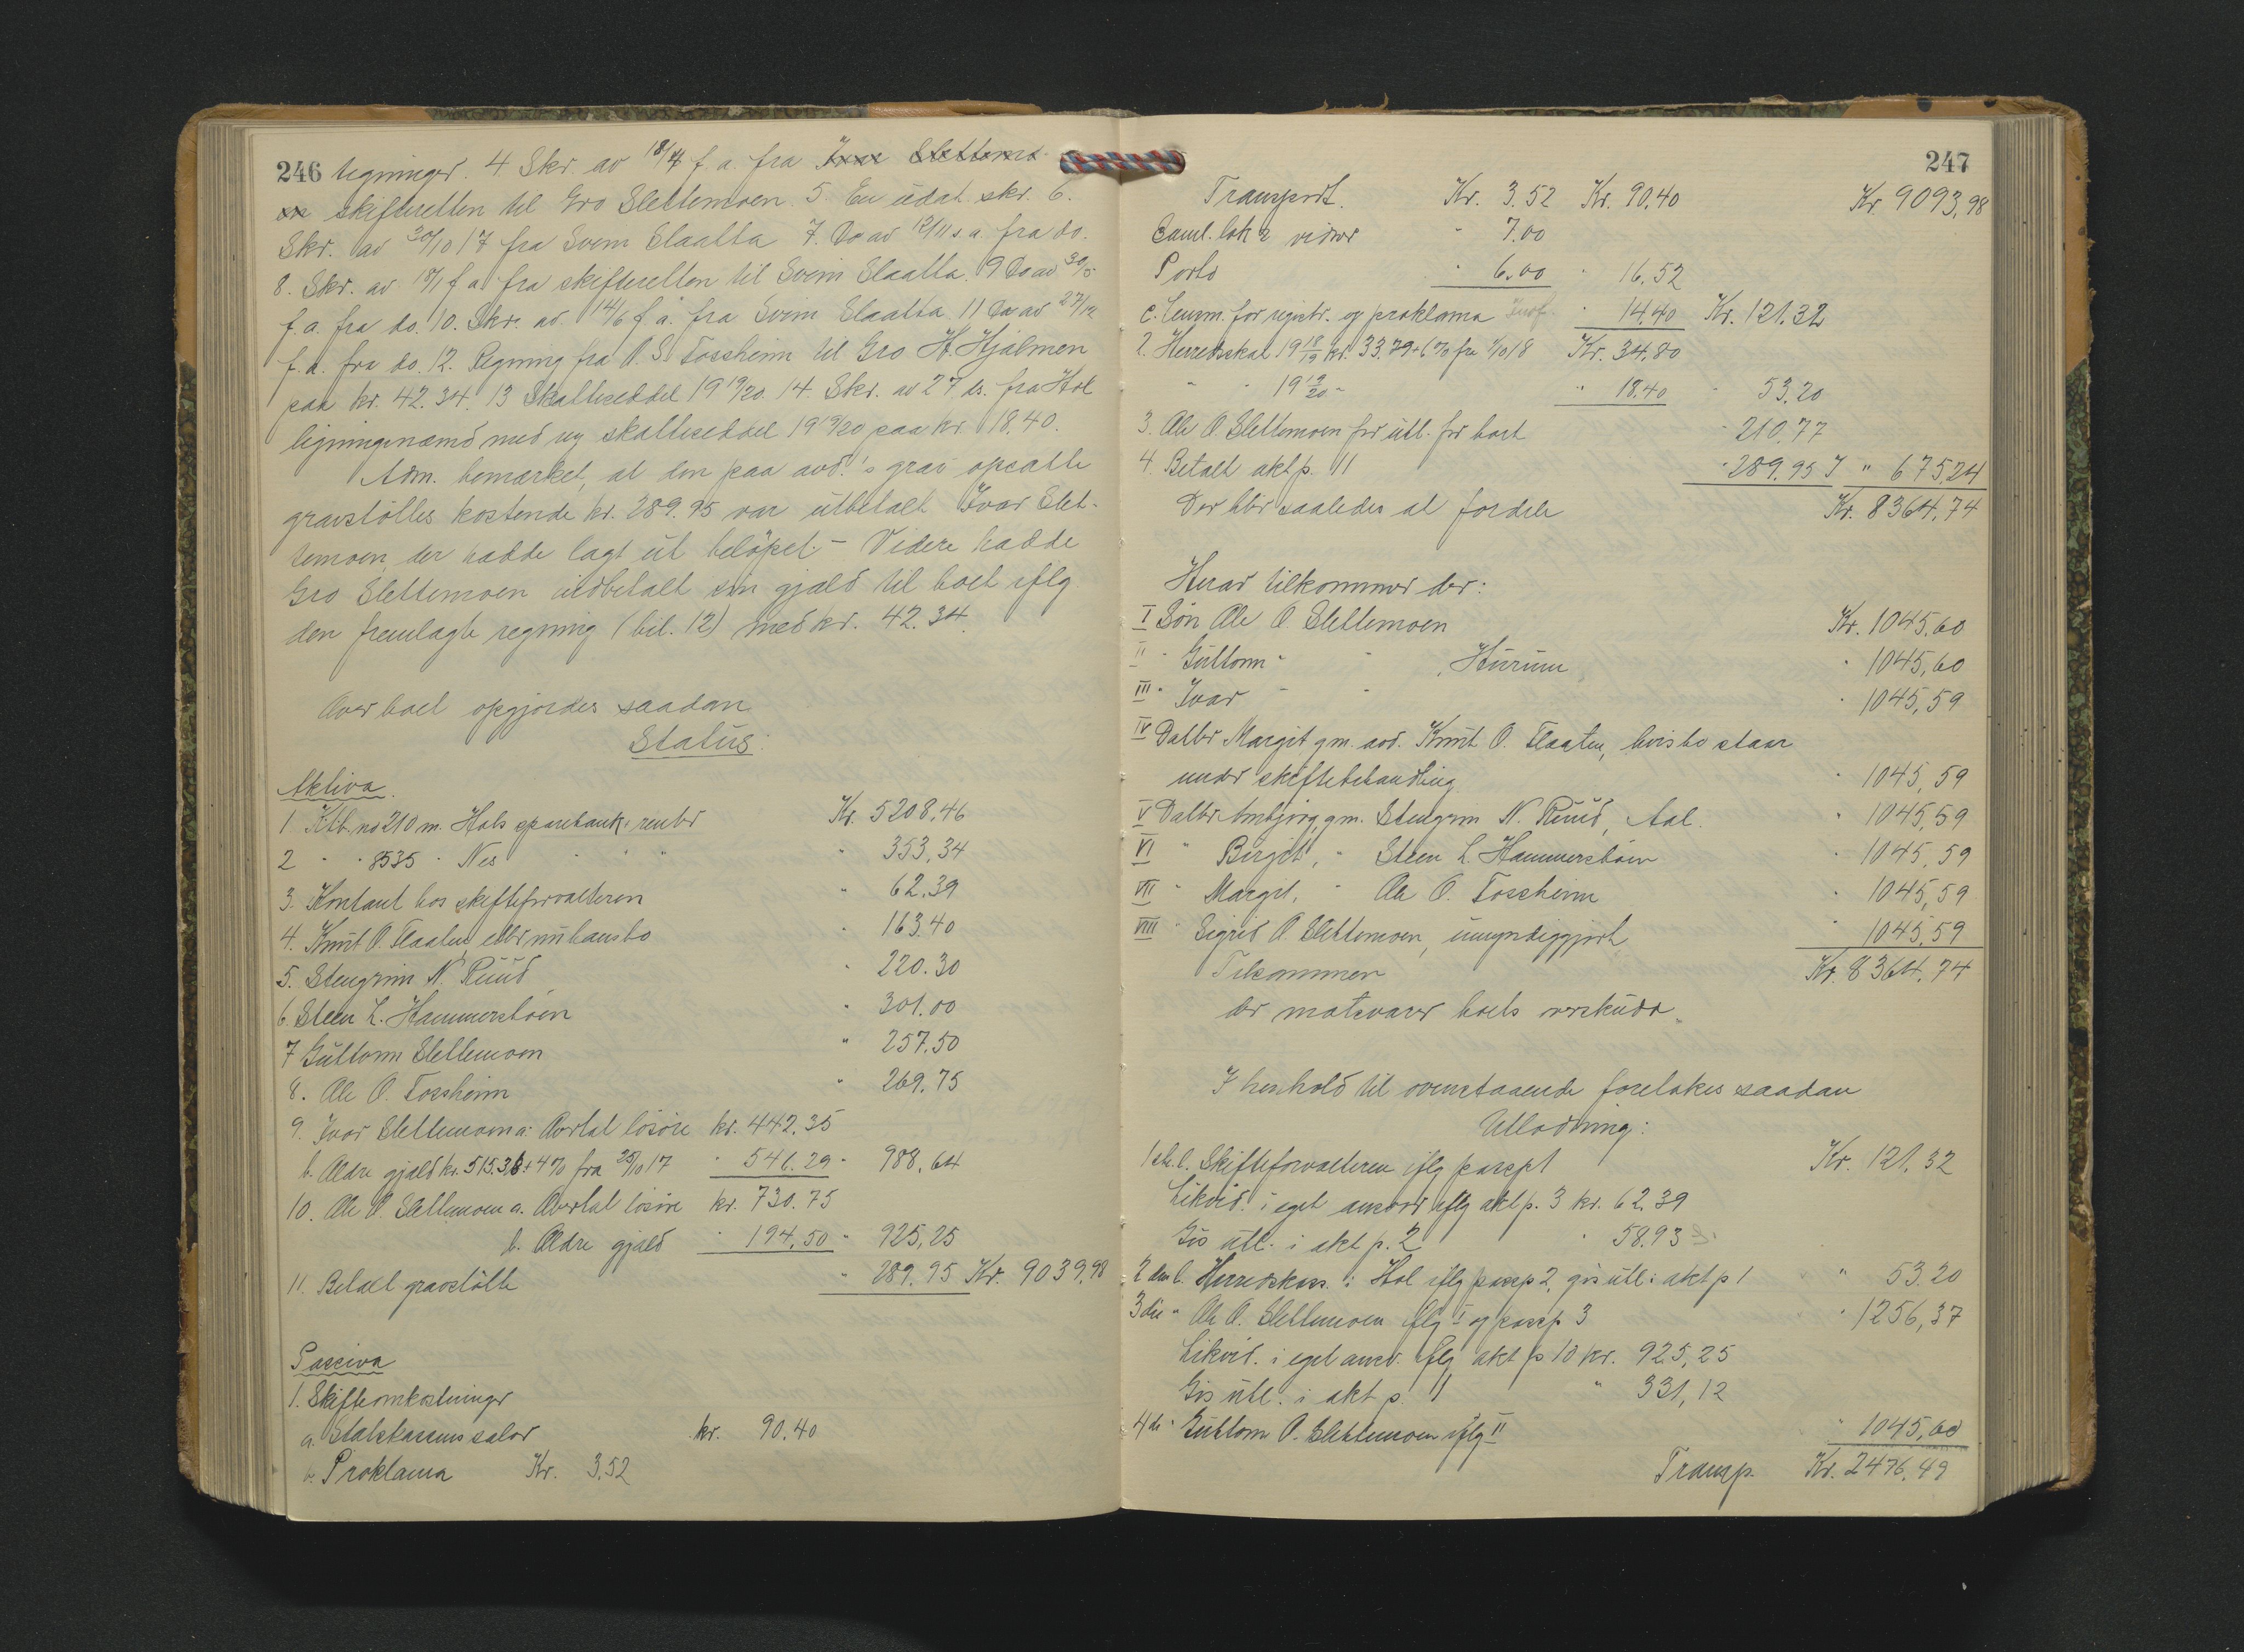 246 tegninger. 4 Skr. av 18/4 f. a. fra Ivar Slettemo-
en skifteretten til Gro Slettemoen. 5. En udat. skr. 6.
Skr. av 30/10 17 fra Svein Slaatta 7. Do av 12/11 s. a. fra do.
8. Skr. av 18/1 f. a. fra skifteretten til Svein Slaatta. 9 Do av 30/5
f. a. fra do. 10. Skr. av 14/6 f. a. fra Svein Slaatta. 11 Do av 27/12
f. a. fra do. 12. Regning fra O. S. Tossheim til Gro H. Hjalmen
paa kr. 42.34. 13 Skatteseddel 19 19/20. 14. Skr. av 27 ds. fra Hol
ligningsnæmd med ny skatteseddel 19 19/20 paa kr. 18.40.
Adm. bemærket, at den paa avd.'s grav opsatte
gravstöttes kostende kr. 289.95 var utbetalt Ivar Slet-
temoen, der hadde lagt ut beløpet. – Videre hadde
Gro Slettemoen indbetalt sin gjæld til boet iflg
den fremlagte regning (bil. 12) med kr. 42.34.
Over boet opgjordes saadan
Status:
Aktiva.
1 Ktb. no 210 m. Hols sparebank + renter Kr. 5208,46
2 " " 8535 " Nes " " " " 353,34
3. Kontant hos skifteforvalteren " 62.39
4. Knut O. Flaaten, eller nu hans bo " 163.40
5. Stengrim N. Ruud " 220.30
6. Steen L. Hammersböen " 301.00
7 Guttorm Slettemoen " 257.50
8. Ole O. Tossheim " 269.75
9. Ivar Slettemoen a: Overtat lösöre kr. 442.35
b. Ældre gjæld kr. 515.36 + 4% fra 25/10 17 " 546.29 " 988,64
10. Ole O. Slettemoen a. Overtat lösöre kr. 730.75
b. Ældre gjæld " 194,50 " 925,25
11. Betalt gravstötte " 289.95 Kr. 9039,98
Passiva
1. Skifteomkostninger
a. Statskassens salær kr. 90.40
b. Proklama Kr. 3.52
247
Transport. Kr. 3.52 Kr. 90.40 Kr 9093,98
Saml. lok & vidner " 7.00
Porto " 6.00 " 16.52
c. Lensm. for registr. og proklama " 14.40 Kr. 121.32
2. Herredsskat 19 18/19 kr. 33.79 + 6% fra 1/10 18 Kr. 34.80
" " 19 19/20 " " 18.40 " 53.20
3. Ole O. Slettemoen for utl. for boet " 210.77
4. Betalt akt p. 11 " 289.95 " 675,24
Der blir saaledes at fordele Kr. 8364,74
Herav tilkommer der:
I Sön Ole O. Slettemoen Kr. 1045,60
II " Guttorm " " , Hurum " 1045,60
III " Ivar " " " 1045,59
IV Datter Margit gm. avd. Knut O. Flaaten, hvis bo staar
under skiftebehandling " 1045,59
V Datter Ambjørg, gm. Stengrim N. Ruud, Aal. " 1045,59
VI " Birgit, " Steen L. Hammersböen " 1045,59
VII " Margit, " Ole O. Tossheim " 1045,59
VIII " Sigrid O. Slettemoen, umyndiggjort " 1045,59
Tilsammen Kr. 8364,74
der motsvarer boets overskudd.
I henhold til ovenstaaende foretokes saadan
Utlodning:
1ste l. Skifteforvalteren iflg pass p 1 Kr. 121.32
Likvid. i eget ansvar iflg akt p. 3 kr. 62.39
Gis utl. i akt p. 2 " 58.93
2 den l. Herredskass. i Hol iflg pass p 2, gis utl. i akt p 1 " 53.20
3 die " Ole O. Slettemoen iflg I og pass p 3 " 1256,37
Likvid. i eget ansv. iflg akt p 10 kr. 925,25
Gis utl. i akt p. 1 " 331,12
4 de " Guttorm O. Slettemoen iflg II " 1045,60
Transp. Kr. 2476,49